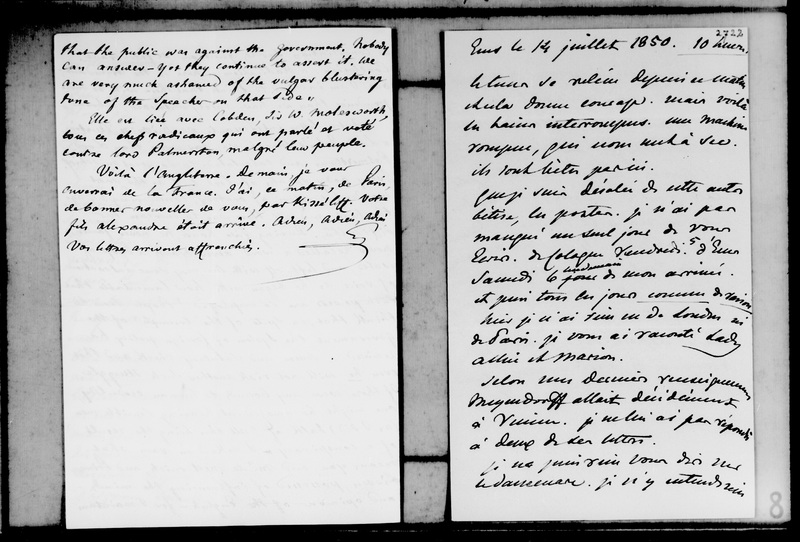 that the public was against the government. Nobody
can answer - yet they continue to assert it. We
are very much ashamed of the vulgar blustering
tone of the Speaker on that side"
Elle est liée avec Cobden, Sir W. Molesworth,
tous ces chefs radicaux qui ont parlé et voté
contre lord Palmerston, malgré leur peuple.
Voilà l'Angleterre. Demain, je vous
enverrai de la France. J'ai, ce matin, de Paris,
de bonnes nouvelles de vous, par Kisséleff. Votre
fils Alexandre était arrivé. Adieu, Adieu, Adieu
Vos lettres arrivent affranchies.
2722
Ems le 14 juillet 1850. 10 heures
le tems se relève depuis ce matin
et cela donne courage. mais voilà
les bains interrompus. une machine
rompue, qui nous met à sec.
ils sont bêtes ici.
que je suis désolée de cette autre
bêtise, les postes. je n'ai pas
manqué un seul jour de vous
écrire. de Cologne Vendredi 5, d'Ems
Samedi 6 lendemain de mon arrivée.
et puis tous les jours comme de raison
hier je n'ai rien eu de Londres ni
de Paris. je vous ai raconté Lady
allice et Marion.
Selon mes derniers renseignemens
Meyendorff allait décidément
à Vienne. je ne lui ai pas répondu
à deux de ses lettres.
je ne puis rien vous dire sur
le Danemarc. je n'y entends rien
8